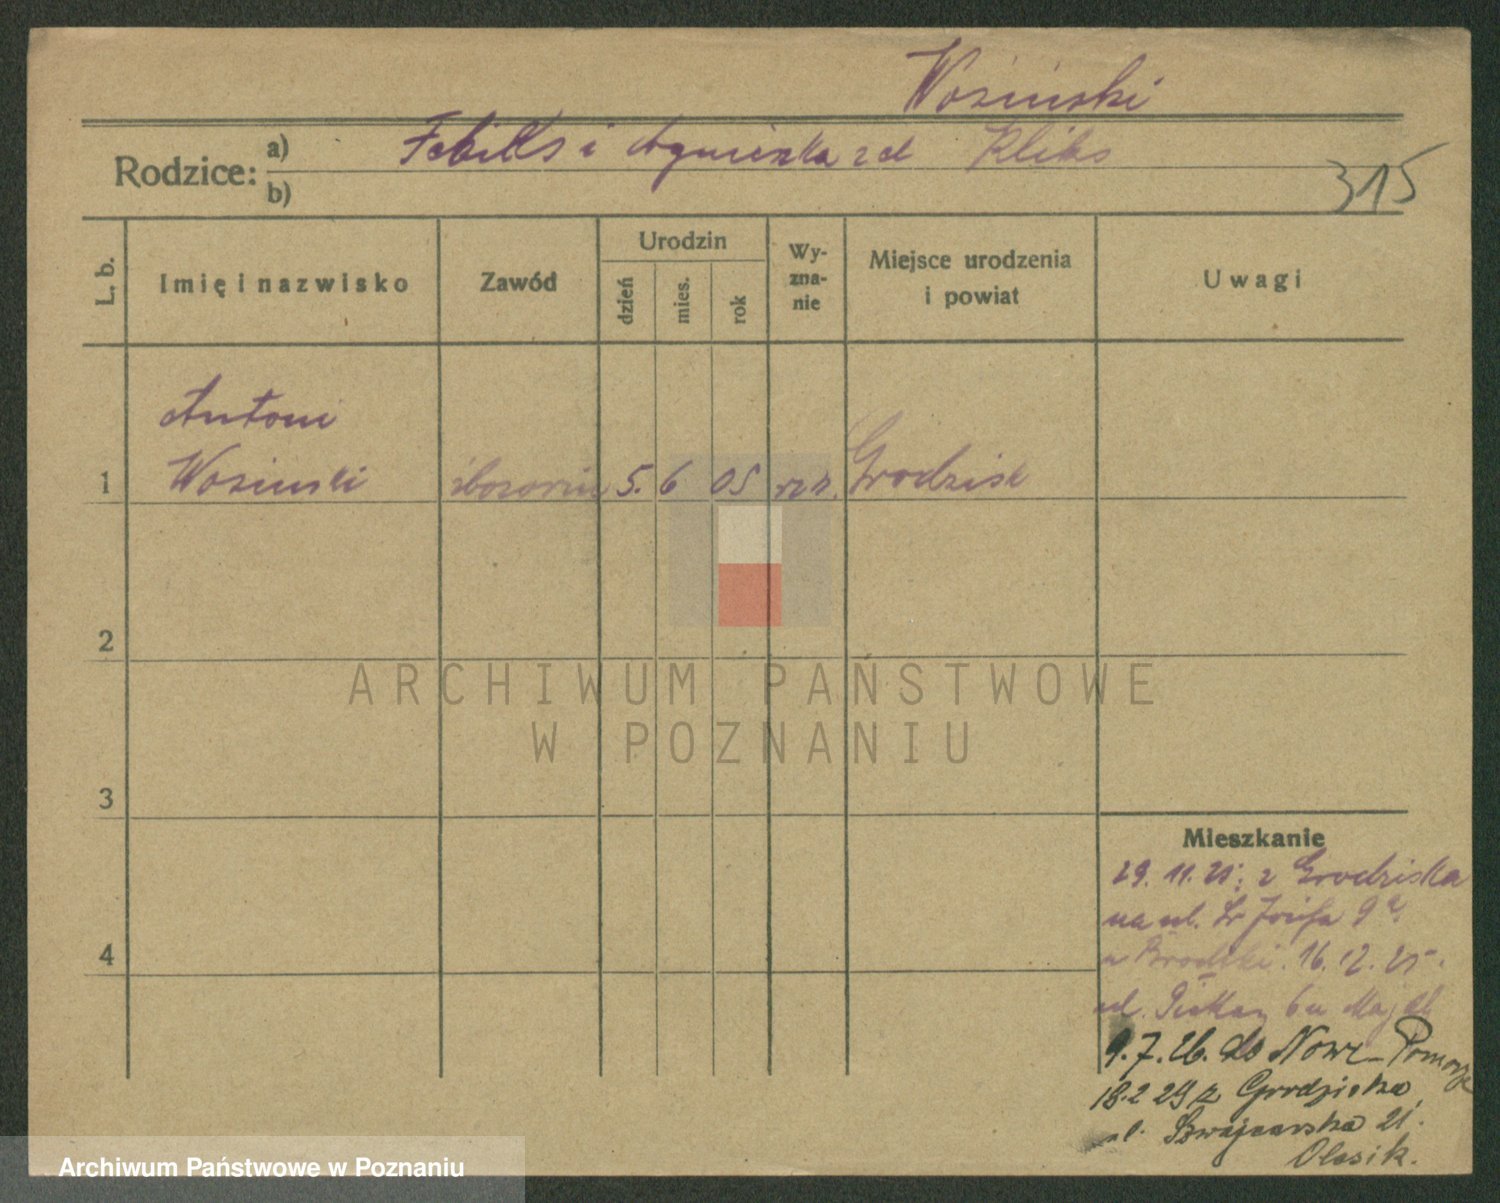 Wosiński
Rodzice: a) Feliks i Agnieszka z d Kliks
b)
315
L. b.
Imię i nazwisko
Zawód
Urodzin
dzień
mies.
rok
Wy-
zna-
nie
Miejsce urodzenia
i powiat
Uwagi
Antoni
1 Wosinski 5. 6 05 rz k. Grodzisk
2
ARCHIWUM PAŃSTWOWE
W POZNANIU
3
Mieszkanie
29. 11. 25; z Grodziska
na ul. Sw Józefa 9
4
16. 12. 25.
ul.
9. 7. 26. do Nowe - Pomorze
18.2 29 z Grodziska
ul. Szwajcarska 21.
Olesik.
Archiwum Państwowe w Poznaniu